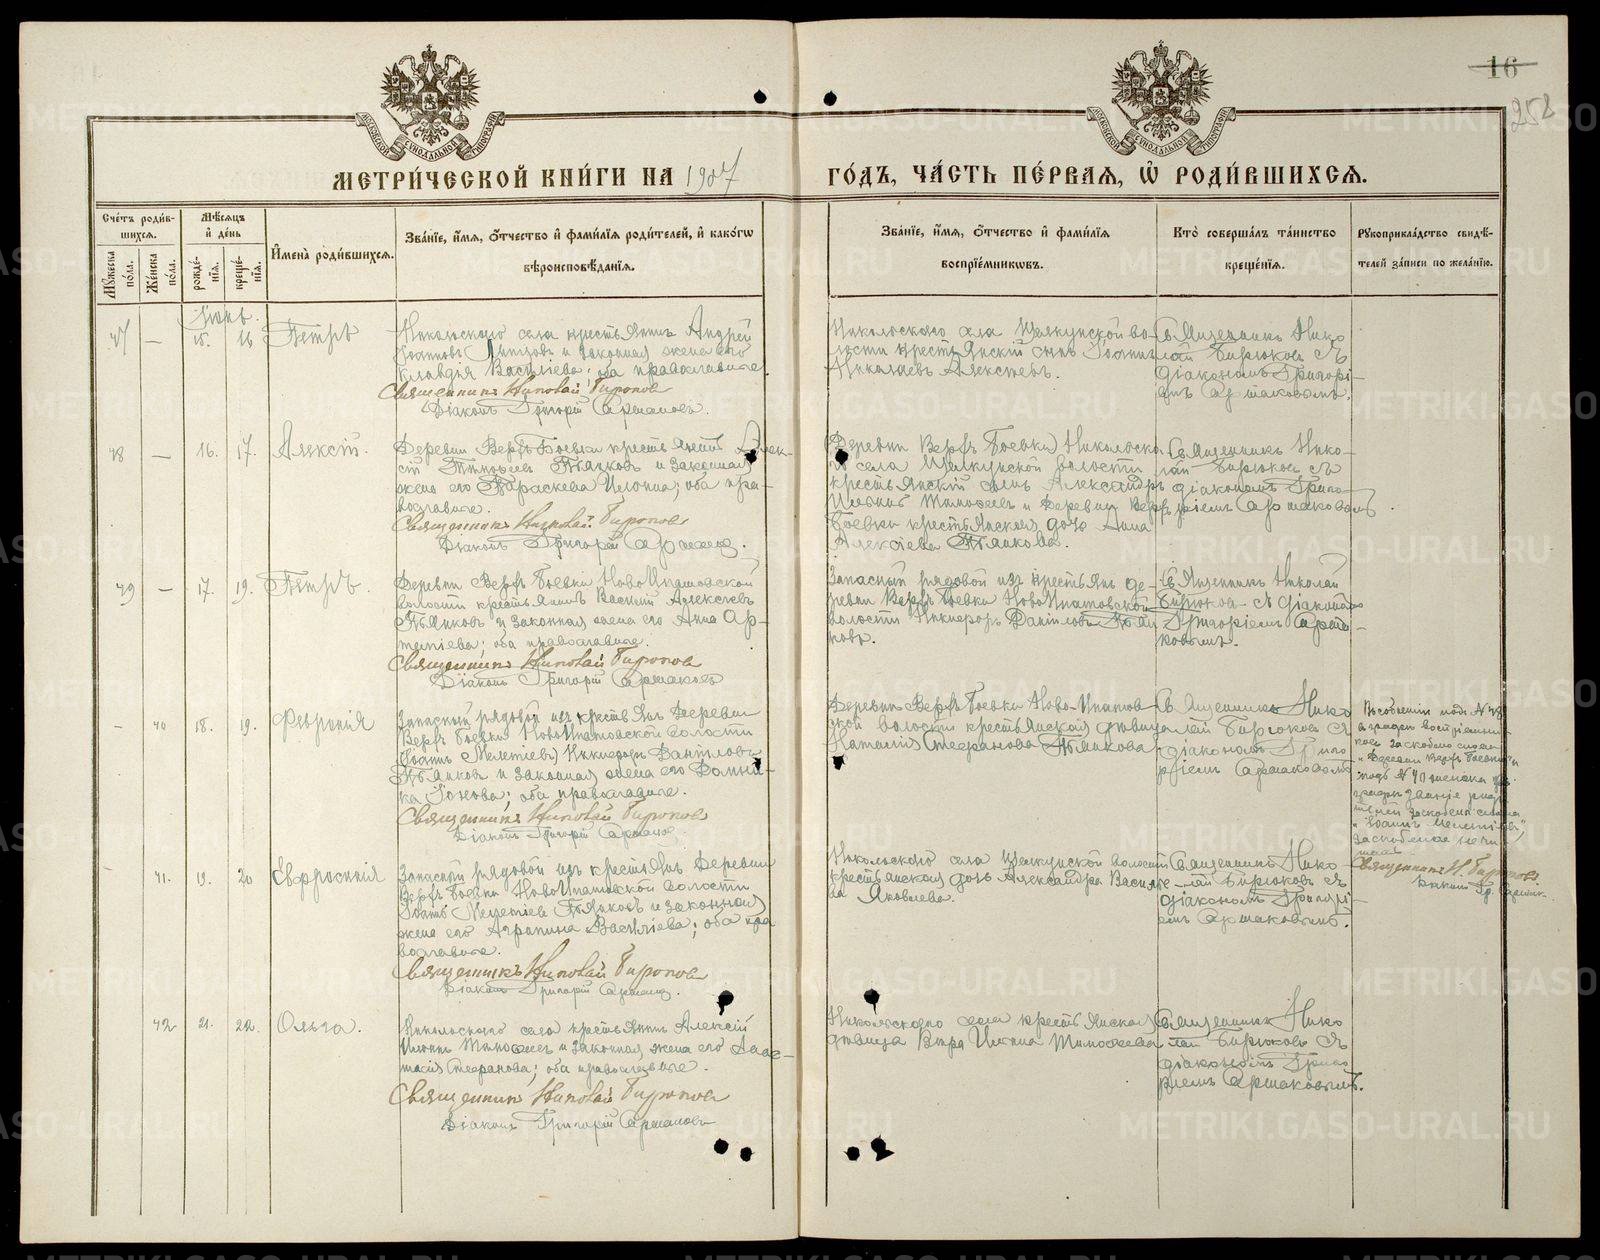 16
252
МЕТРИ́ЧЕСКОЙ КНИ́ГИ НА 1907
ГО́ДЪ, ЧА́СТЬ ПЕ́РВАЯ, Ѡ҆ РОДИ́ВШИХСЯ.
Сче́тъ роди́в-
шихся.
Мѣ́сяцъ
и҆ де́нь
Му́жеска по́ла.
Же́нска по́ла.
рожде́-
нїя.
креще́-
нїя.
И҆мена̀ роди́вшихся.
Зва́нїе, и҆́мя, ѻ҆́тчество и҆ фами́лїя роди́телей, и҆ како́гѡ
вѣроисповѣ́данїя.
Зва́нїе, и҆́мя, ѻ҆́тчество и҆ фами́лїя
воспрїе́мникѡвъ.
Кто̀ соверша́лъ та́инство
креще́нїя.
Рукоприкла́дство свидѣ́-
телей за́писи по жела́нїю.
Іюнь.
47 — 15. 16 Петръ
Никольскаго села крестьянинъ Андрей
Іоанновъ и законная жена его
Клавдія Василіева; оба православные.
Священникъ Николай Бирюковъ
Діаконъ Григорій Аршаковъ.
Никольскаго села Щелкунской во-
лости крестьянскій сынъ Іоаннъ
Николаевъ Алексѣевъ.
Священникъ Нико
лай Бирюковъ съ
діакономъ Григорі-
емъ Аршаковымъ.
48 — 16. 17. Алексій.
Деревни Верхъ Боевки крестьянинъ Алек-
сій Тимофеевъ Пьянковъ и законная
жена его Параскева Ильина; оба пра-
вославные.
Священникъ Николай Бирюковъ
Діаконъ Григорій Аршаковъ.
(Деревни Верхъ Боевки) Никольска-
го села Щелкунской волости
крестьянскій сынъ Александръ
Тимофеевъ и деревни Верхъ
Боевки крестьянская дочь Анна
Алексіева Пьянкова.
Священникъ Нико-
лай Бирюковъ съ
діакономъ Григо-
ріемъ Аршаковымъ
49 — 17. 19. Петръ.
Деревни Верхъ Боевки НовоИпатовской
волости крестьянинъ Василій Алексѣевъ
Пьянковъ и законная жена его Анна Ар-
теміева; оба православные.
Священникъ Николай Бирюковъ
Діаконъ Григорій Аршаковъ
Запасный рядовой изъ крестьянъ де-
ревни Верхъ Боевки НовоИпатовской
волости Никифоръ Даніиловъ Пьян
ковъ.
Священникъ Николай
Бирюковъ съ діакономъ
Григоріемъ Арша-
ковымъ.
— 40 18. 19. Февронія
Запасный рядовой изъ крестьянъ деревни
Верхъ Боевки НовоИпатовской волости
(Іоаннъ Мелетіевъ) Никифоръ Даніиловъ
Пьянковъ и законная жена его Домни-
ка Іонова; оба православные.
Священникъ Николай Бирюковъ
Діаконъ Григорій Аршаковъ
Деревни Верхъ Боевки Ново-Ипатов
ской волости крестьянская дѣвица
Наталія Стефанова Пьянкова
Священникъ Нико
лай Бирюковъ съ
діакономъ Григо
ріемъ Аршаковымъ
подъ № 48
"Деревни Верхъ Боевки" и
подъ № 40
"Іоаннъ Мелетіевъ",
Священникъ Н. Бирюковъ
Діаконъ Гр. Аршак.
— 41. 19. 20 Евфросинія
Запасный рядовой изъ крестьянъ деревни
Верхъ Боевки НовоИпатовской волости
Іоаннъ Мелетіевъ Пьянковъ и законная
жена его Агрипина Василіева; оба пра
вославные.
Священникъ Николай Бирюковъ
Діаконъ Григорій Аршаковъ.
Никольскаго села Щелкунской волости
крестьянская дочь Александра Василье-
ва Яковлева.
Священникъ Нико
лай Бирюковъ съ
діакономъ Григорі-
емъ Аршаковымъ.
42 21. 22. Ольга.
Никольскаго села крестьянинъ Алексій
Ильинъ Тимофеевъ и законная жена его Анас-
тасія Стефанова; оба православные.
Священникъ Николай Бирюковъ
Діаконъ Григорій Аршаковъ
Никольскаго села крестьянская
дѣвица Вѣра Ильина Тимофеева
Священникъ Нико
лай Бирюковъ съ
діакономъ Григо
ріемъ Аршаковымъ.
METRIKI.GASO-URAL.RU